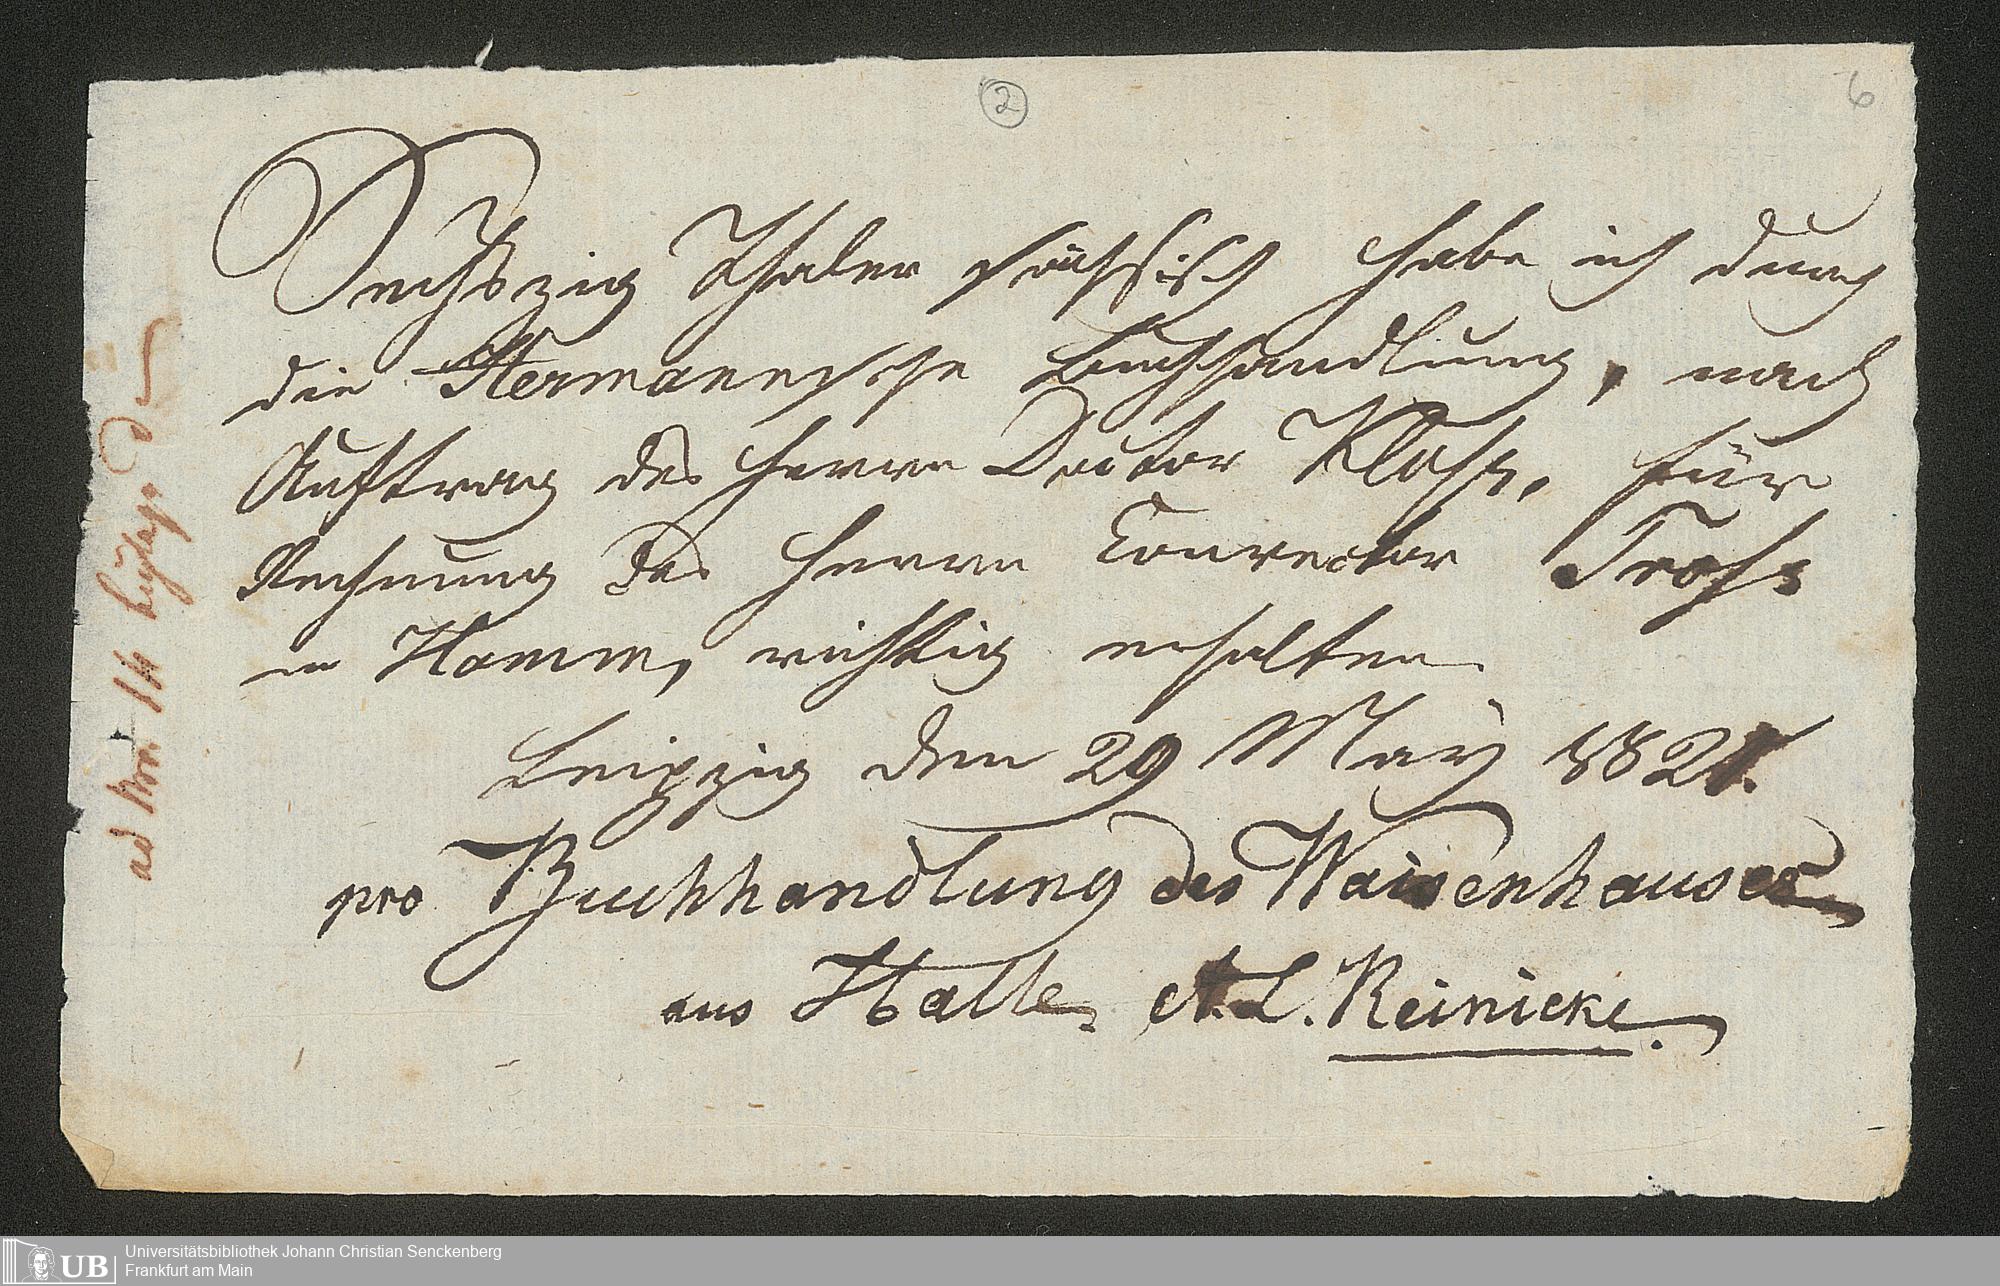 2
6
Sechszig Thaler sächsisch habe ich durch
die Hermannsche Buchhandlung, nach
Auftrag des Herrn Doctor Kloss, für
Rechnung des Herrn Conrector Tross
in Hamm, richtig erhalten.
Leipzig den 29 May 1821.
pro Buchhandlung des Waisenhauses
aus Halle. A. L. Reinicke.
ad Nro. 114
Universitätsbibliothek Johann Christian Senckenberg
Frankfurt am Main
UB